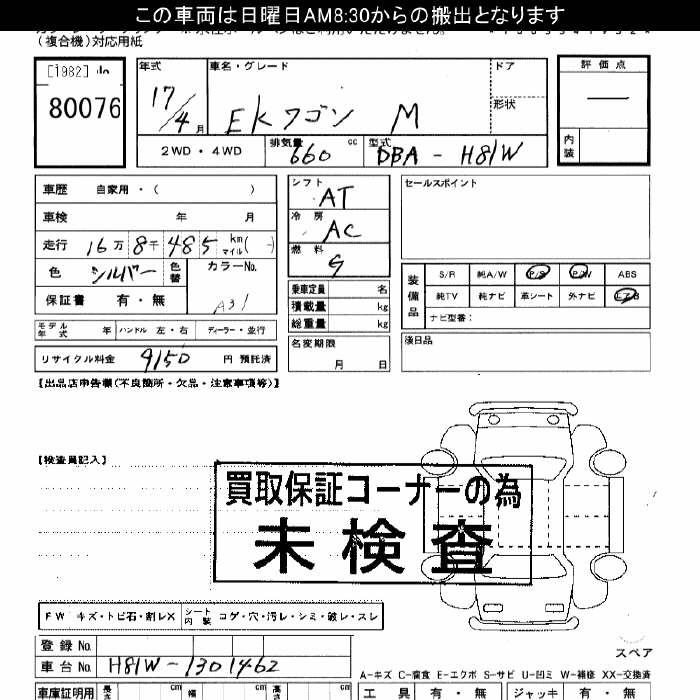 この車両は日曜日AM8:30からの搬出となります
(複合機)対応用紙
[1982]
80076
年式
17/4月
車名・グレード
EKワゴン M
ドア
形状
評価点
—
内装
2WD・4WD
排気量 660 cc
型式 DBA-H81W
車歴 自家用・( )
車検 年 月
走行 16万8千485 km マイル( )
色 シルバー 色替
カラーNo. A31
保証書 有・無
モデル年式 年 ハンドル 左・右 ディーラー・並行
リサイクル料金 9150 円 預託済
シフト AT
冷房 AC
燃料 G
乗車定員 名
積載量 kg
総重量 kg
名変期限
月 日
セールスポイント
装備品
S/R 純A/W P/S P/W ABS
純TV 純ナビ 革シート 外ナビ エアB
ナビ型番:
後日品
【出品店申告欄(不良箇所・欠品・注意事項等)】
【検査員記入】
買取保証コーナーの為
未検査
FW キズ・トビ石・割レX シート内装 コゲ・穴・汚レ・シミ・破レ・スレ
登録No.
車台No. H81W-1301462
スペア
A-キズ C-腐食 E-エクボ S-サビ U-凹ミ W-補修 XX-交換済
車庫証明用 長さ cm 幅 cm 高さ cm
工具 有・無 ジャッキ 有・無